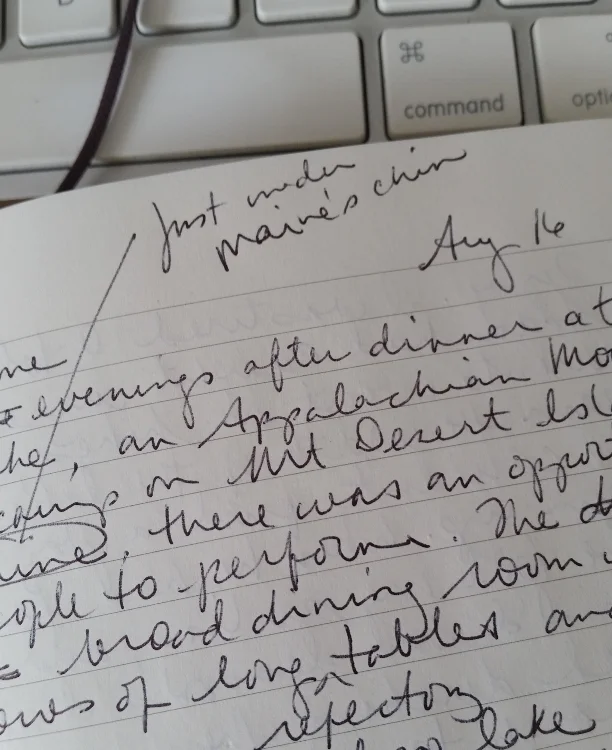 ⌘
command
opti
Just under
Maine's chin
Aug 16
me
evenings after dinner at
he, an Appalachian Mo
camp on Mt Desert Isl
ine, there was an oppor
ople to perform. The d
broad dining room
ows of long tables and
refectory
lake